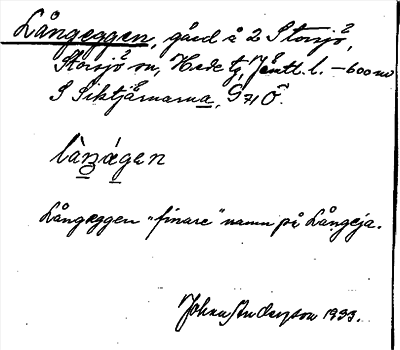 Långeggen, gård å 2 Storsjö,
Storsjö sn, Hede tg, Jämtl. l. – 600 m
S Siktjärnarna, G 71 Ö.
làŋágen
Långæggen "finare" namn på Långeja.
Johan Anderson 1933.